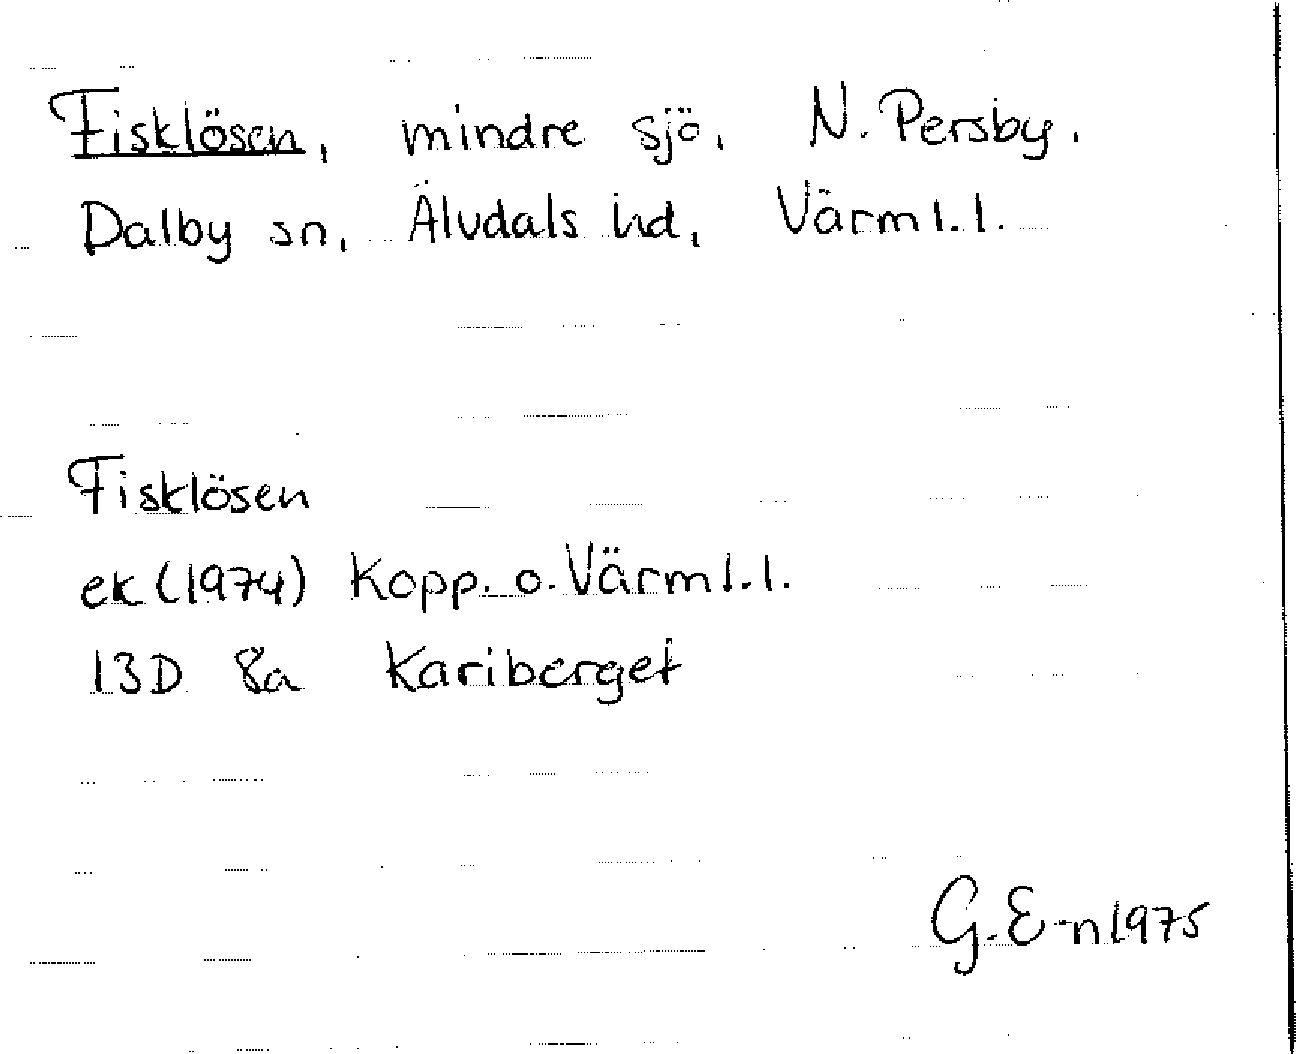 Fisklösen, mindre sjö, N. Persby.
Dalby sn, Älvdals hd, Värml.l.
Fisklösen
ek (1974) Kopp. o. Värml.l.
13D 8a Kariberget
G. E-n 1975